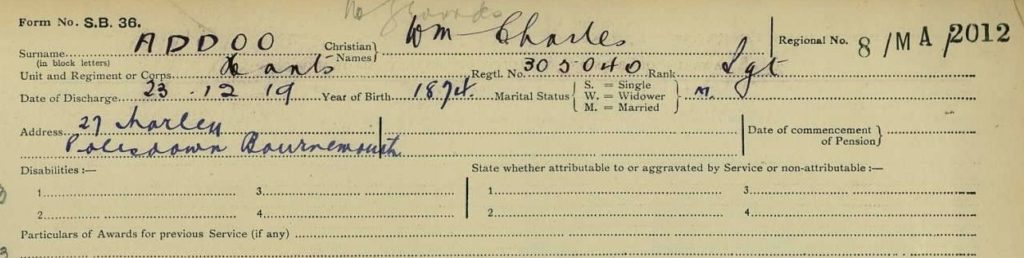 No Awards
Form No. S.B. 36.
Surname ADDOO Christian Names} Wm Charles Regional No. 8/MA/2012
(in block letters)
Unit and Regiment or Corps. Hants Regtl. No. 305040 Rank Sgt
Date of Discharge 23.12 19 Year of Birth 1874. Marital Status { S. = Single W. = Widower M. = Married } M.
Address 27
Pokesdown Bournemouth
Date of commencement of Pension}
Disabilities :— State whether attributable to or aggravated by Service or non-attributable :—
1. 3. 1. 3.
2. 4. 2. 4.
Particulars of Awards for previous Service (if any)